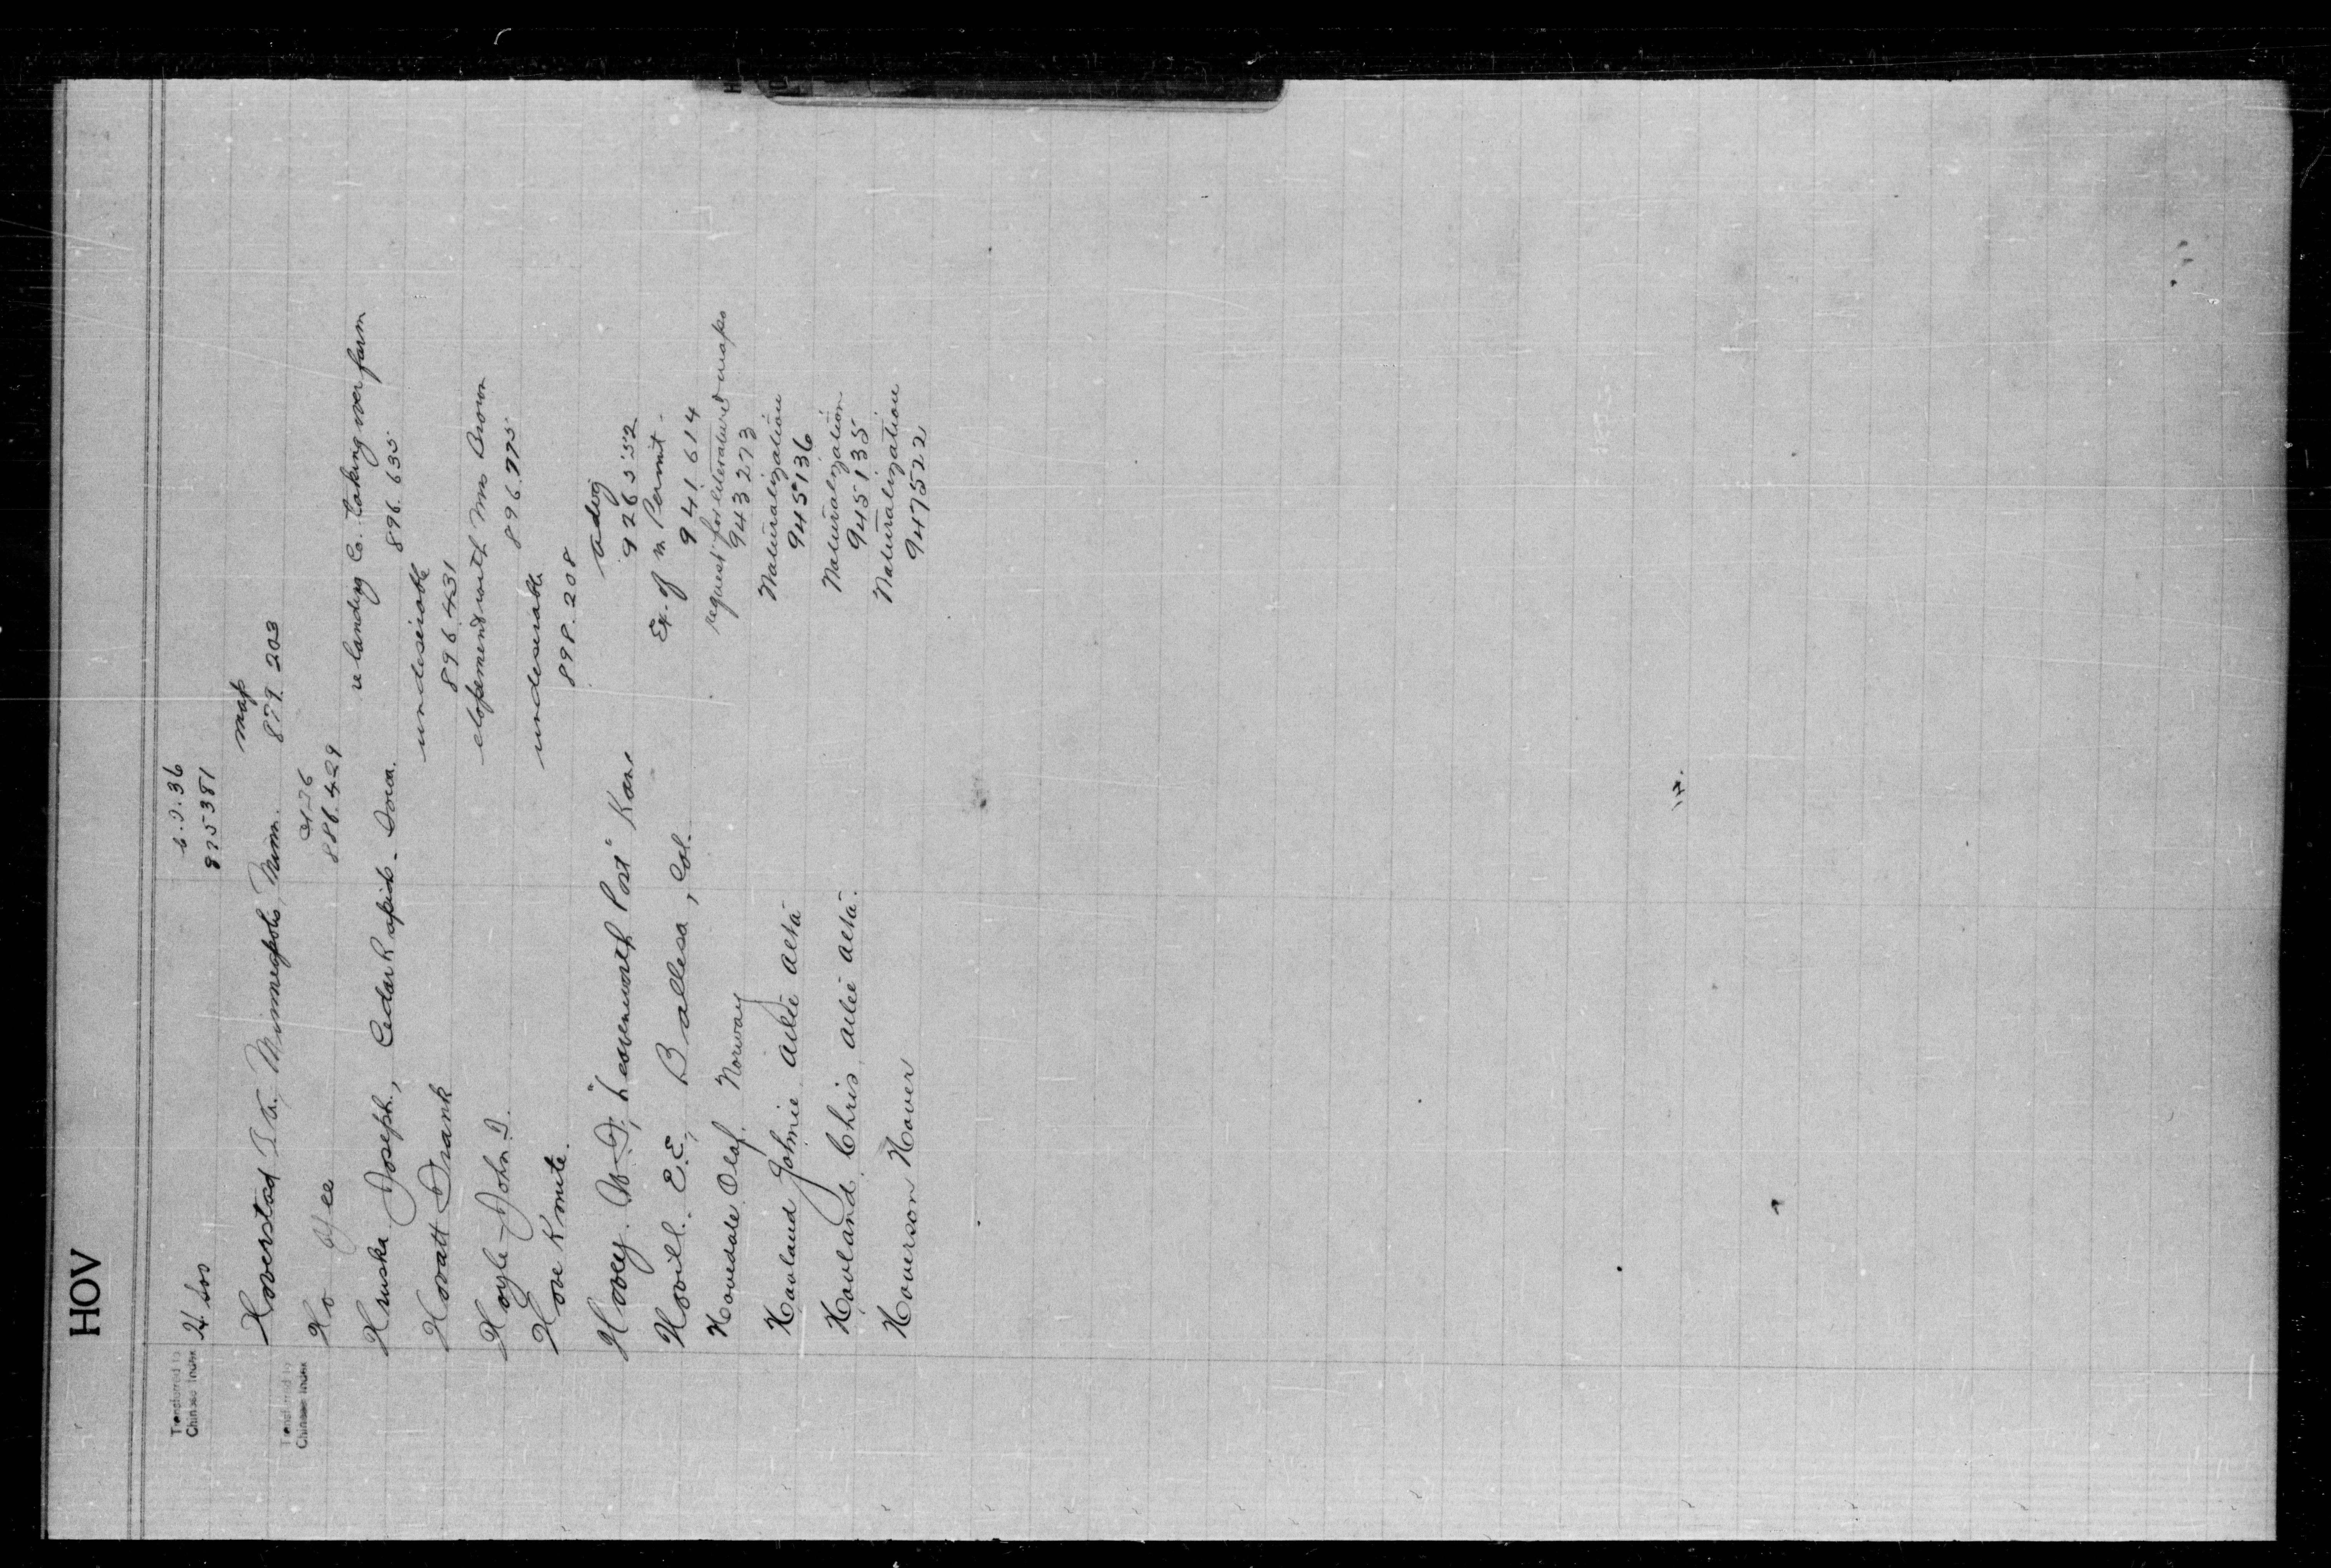 HOV
Transferred to
Chinese Index
C.I.36
875381
Hoverstad T.A. Minneapolis, Minn. map
879.203
Transferred to
Chinese Index
Ho Yee CI36
886.429
Hruska Joseph, Cedar Rapids. Iowa. re landing Co. taking over farm
896.635
Hovatt Frank undesirable
896.431
Hoyle John D. elopement with Mrs Brown
896.775
Hove Knute. undesirable
898.208
Hovey. W.D., "Leavenworth Post" Kans adv'g
926552
Hovill. E.E., Ballesa, Col. Ex. of m. Permit.
941614
Hovedale Olaf. Norway request for literature & maps
943273
Hovland Johnie Naturalization
945136
Hovland Chris Naturalization
945135
Hoverson Hover Naturalization
947522